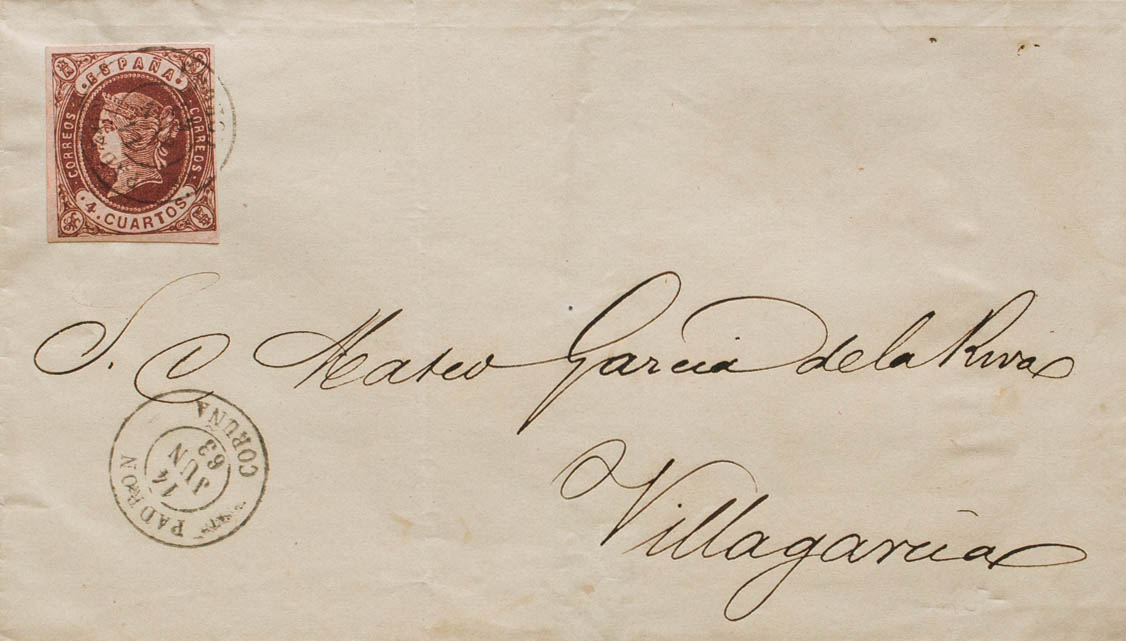 ESPAÑA
CORREOS CORREOS
4 CUARTOS
S. D. Mateo Garcia de la Riva
Villagarcia
PADRON
14
JUN
63
CORUÑA